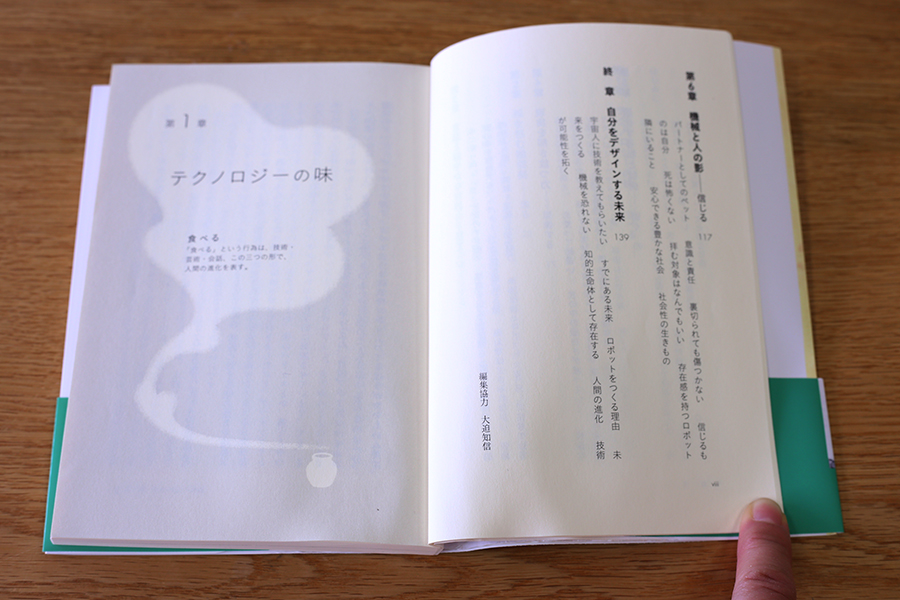 第6章 機械と人の影──信じる 117
パートナーとしてのペット 意識と責任 裏切られても傷つかない 信じるも
のは自分 死は怖くない 拝む対象はなんでもいい 存在感を持つロボット
隣にいること 安心できる豊かな社会 社会性の生きもの
終章 自分をデザインする未来 139
宇宙人に技術を教えてもらいたい すでにある未来 ロボットをつくる理由 未
来をつくる 機械を恐れない 知的生命体として存在する 人間の進化 技術
が可能性を拓く
編集協力 大迫知信
viii
第1章
テクノロジーの味
食べる
「食べる」という行為は、技術・
芸術・会話、この三つの形で、
人間の進化を表す。